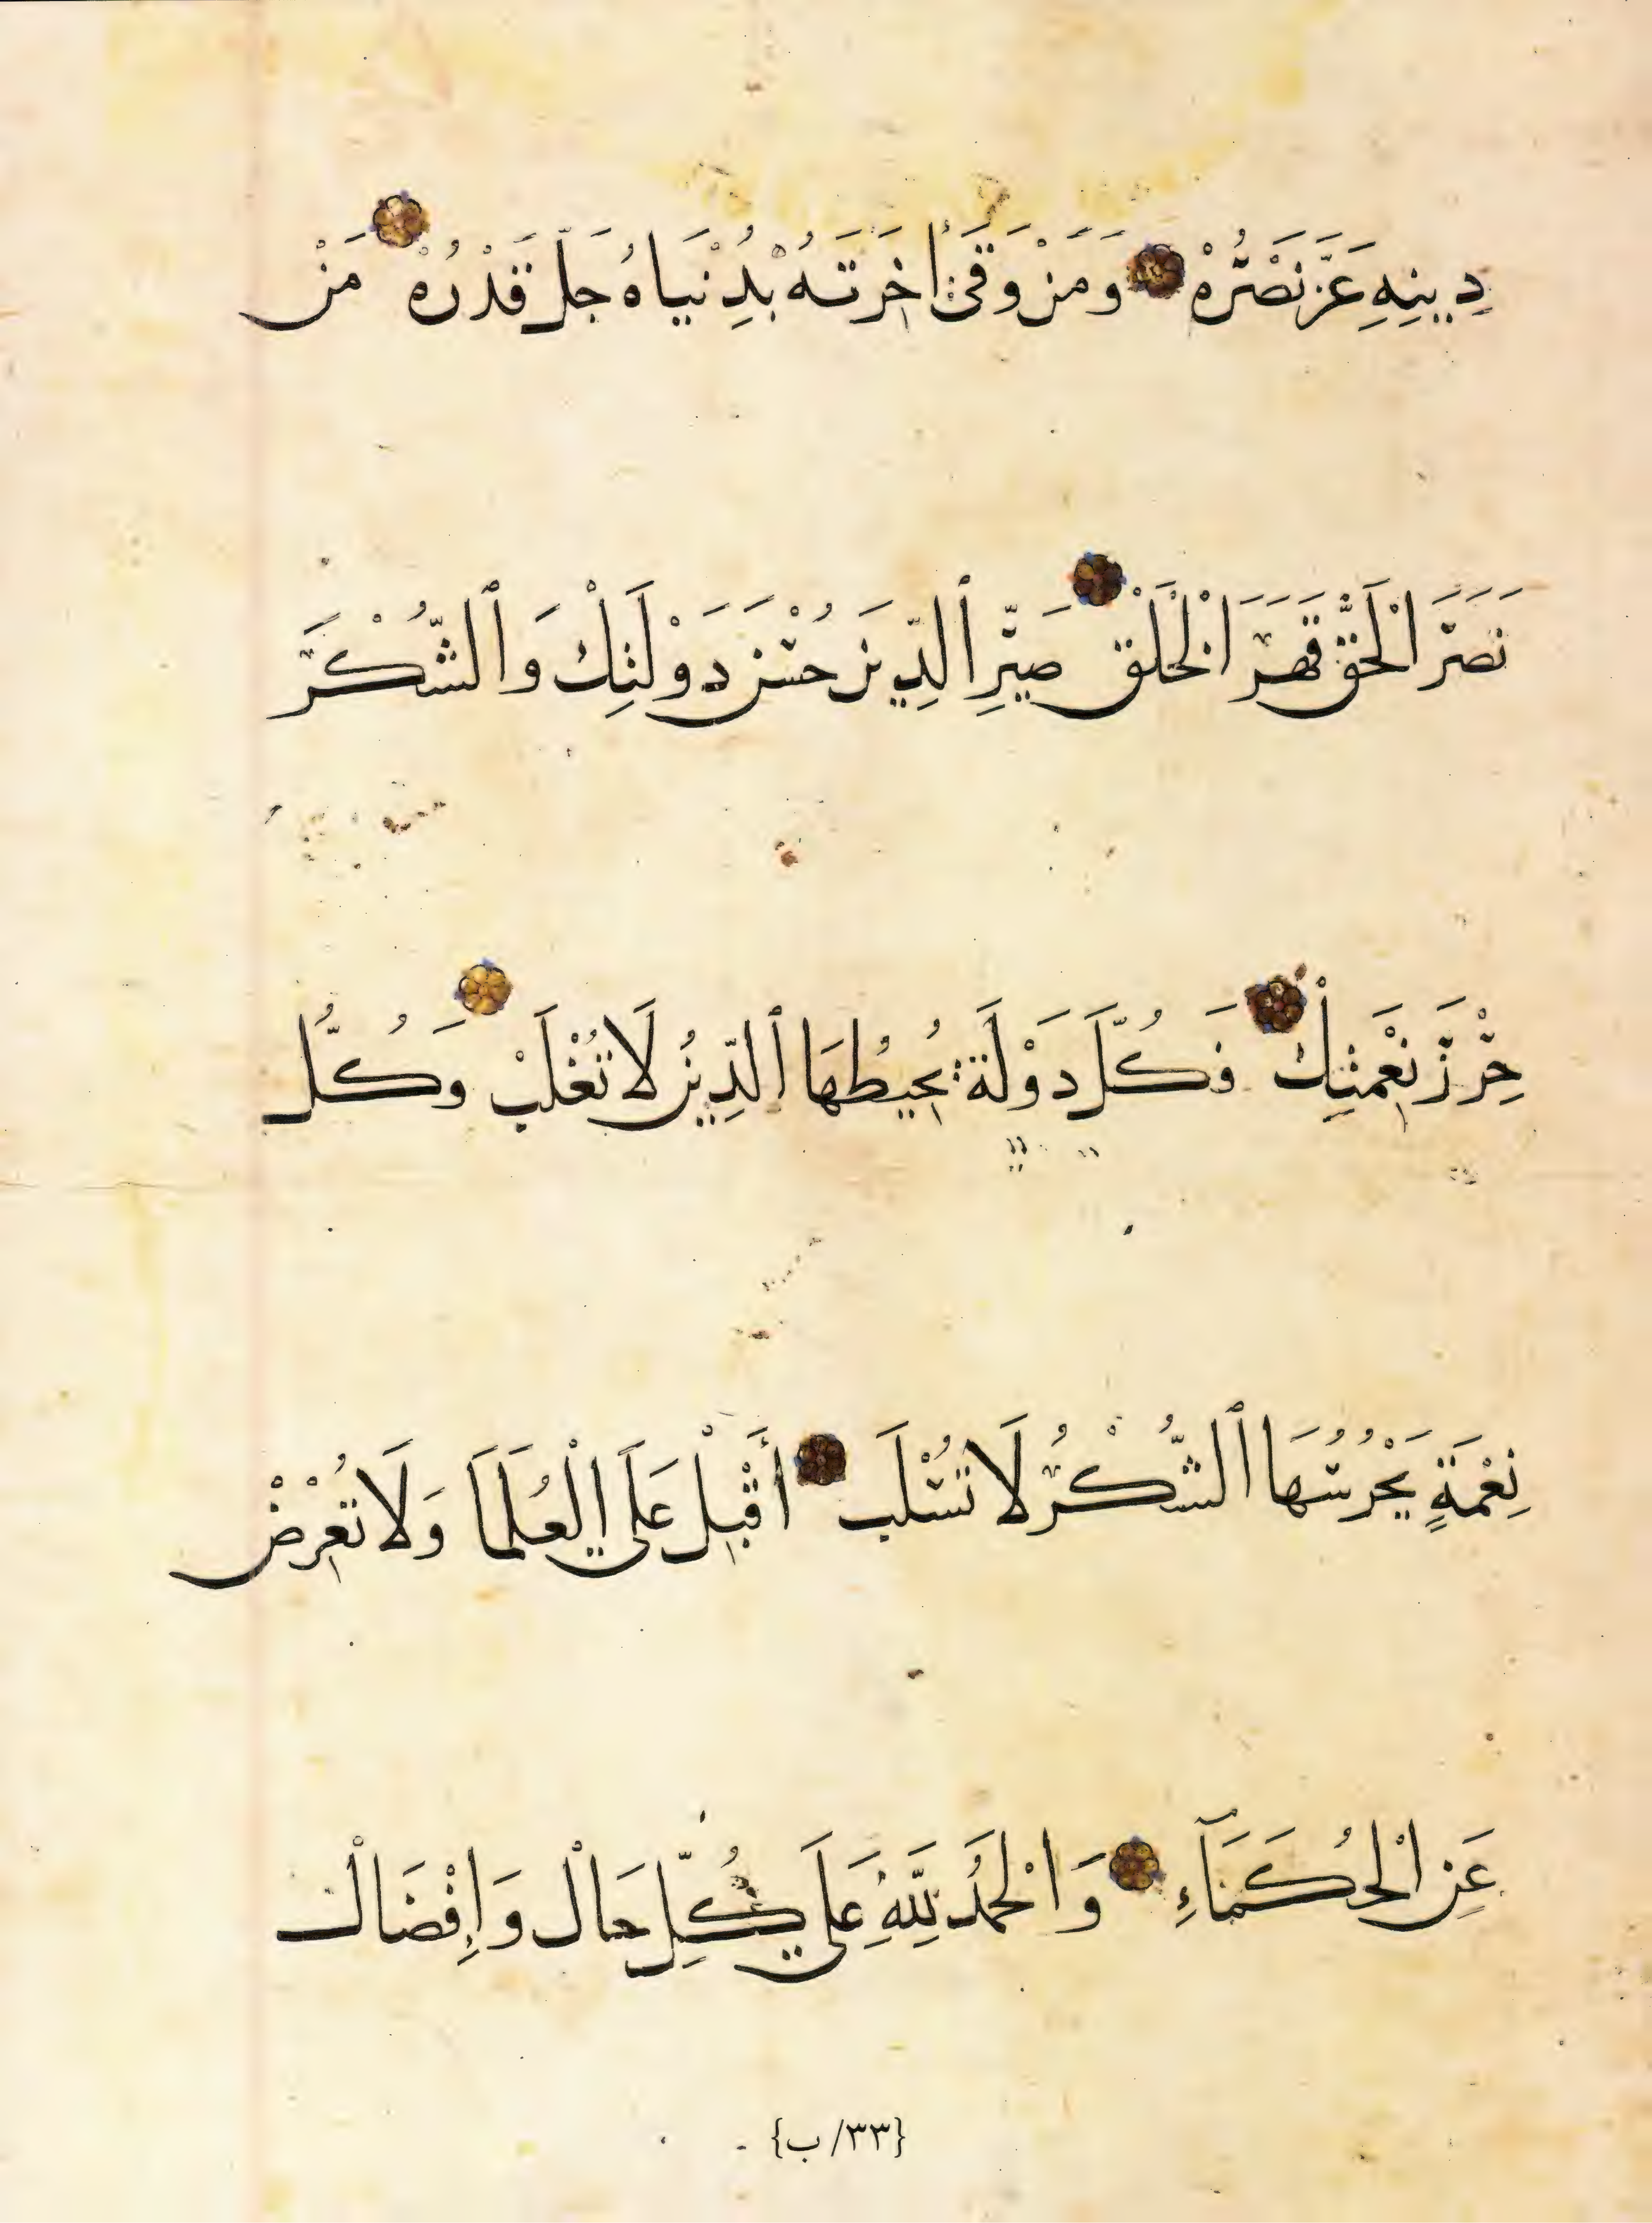 دِينِهِ عَزَّ نَصْرُهْ وَمَنْ وَقَى أخِرَتَهُ بِدُنْيَاهُ جَلَّ قَدْرُهْ مَنْ
نَصَرَ الْحَقَّ قَهَرَ الْخَلَقْ صَيِّرِ ٱلدِّينَ حُسْنَ دَوْلَتِكْ وَٱلشُّكْرَ
حِرْزَ نِعْمَتِكْ فَكُلَّ دَوْلَة يُحِيطُهَا ٱلدِّينُ لَا تُغْلَبْ وَكُلُّ
نِعْمَةٍ يَحْرُسُهَا ٱلشُّكْرُ لَا تُسْلَب أَقْبِلْ عَلَى الْعُلَمَا وَلَا تُعْرِضْ
عَنِ الْحُكَمَآءِ وَالْحَمْدُ لِلَّهِ عَلَى كُلِّ حَالْ وَإِفْضَال
{٣٣/ ب}